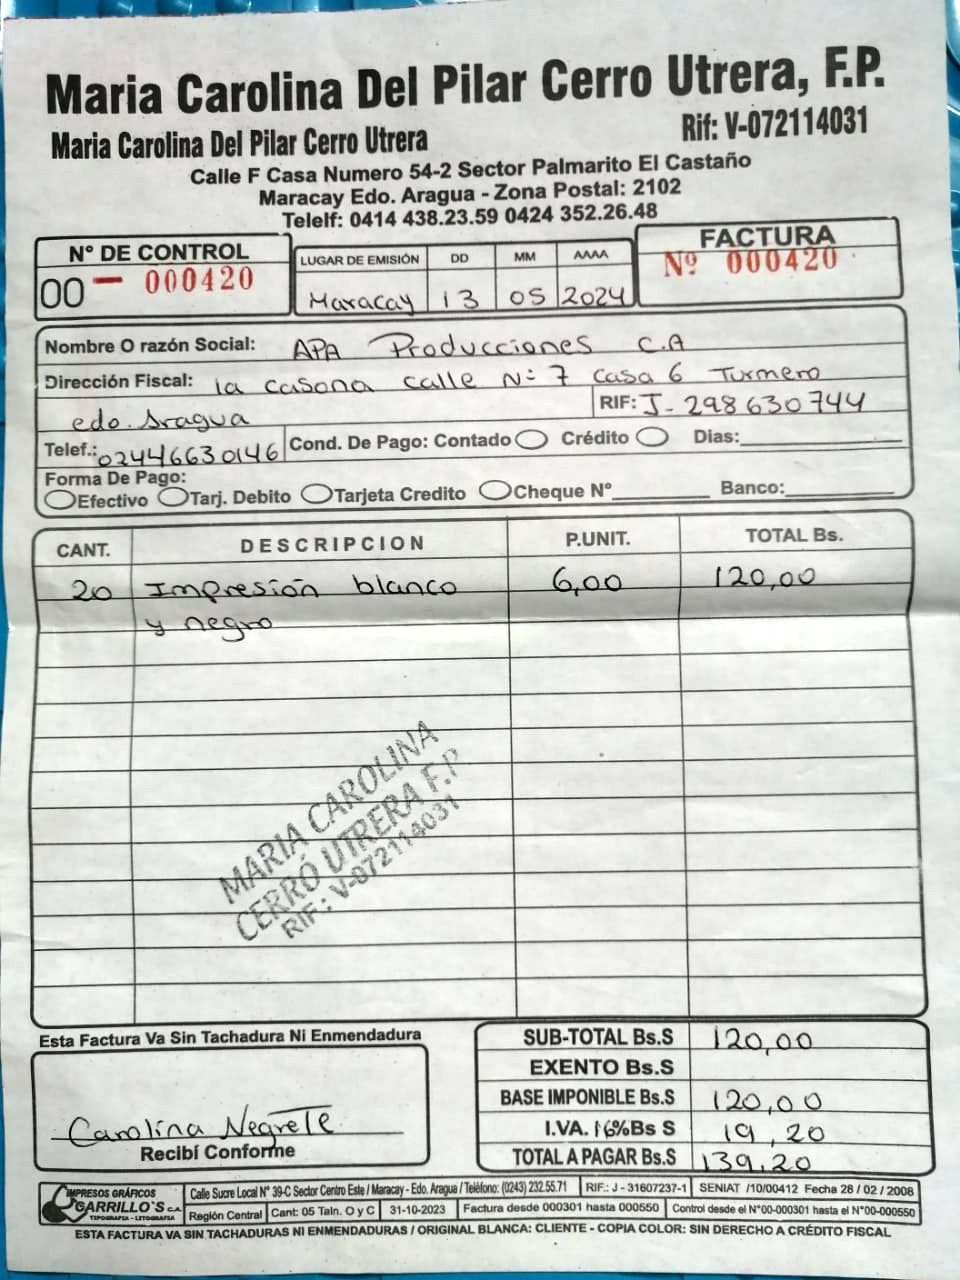 Maria Carolina Del Pilar Cerro Utrera, F.P.
Maria Carolina Del Pilar Cerro Utrera Rif: V-072114031
Calle F Casa Numero 54-2 Sector Palmarito El Castaño
Maracay Edo. Aragua - Zona Postal: 2102
Telelf: 0414 438.23.59 0424 352.26.48
N° DE CONTROL
00 - 000420
LUGAR DE EMISIÓN DD MM AAAA
Maracay 13 05 2024
FACTURA
Nº 000420
Nombre O razón Social: APA Producciones C.A
Dirección Fiscal: la casona calle N° 7 casa 6 Turmero
edo. Aragua RIF: J-298630744
Telef.: 02446630146 Cond. De Pago: Contado Crédito Dias:
Forma De Pago:
Efectivo Tarj. Debito Tarjeta Credito Cheque N° Banco:
CANT. DESCRIPCION P.UNIT. TOTAL Bs.
20 Impresión blanco 6,00 120,00
y negro
MARIA CAROLINA
CERRO UTRERA F.P
RIF.: V-072114031
Esta Factura Va Sin Tachadura Ni Enmendadura
Carolina Negrete
Recibí Conforme
SUB-TOTAL Bs.S 120,00
EXENTO Bs.S
BASE IMPONIBLE Bs.S 120,00
I.V.A. 16%Bs S 19,20
TOTAL A PAGAR Bs.S 139,20
IMPRESOS GRÁFICOS
CARRILLO'S C.A.
TIPOGRAFIA - LITOGRAFIA
Calle Sucre Local N° 39-C Sector Centro Este / Maracay - Edo. Aragua / Teléfono: (0243) 232.55.71 RIF.: J - 31607237-1 SENIAT /10/00412 Fecha 28 / 02 / 2008
Región Central Cant: 05 Taln. O y C 31-10-2023 Factura desde 000301 hasta 000550 Control desde el N°00-000301 hasta el N°00-000550
ESTA FACTURA VA SIN TACHADURAS NI ENMENDADURAS / ORIGINAL BLANCA: CLIENTE - COPIA COLOR: SIN DERECHO A CRÉDITO FISCAL